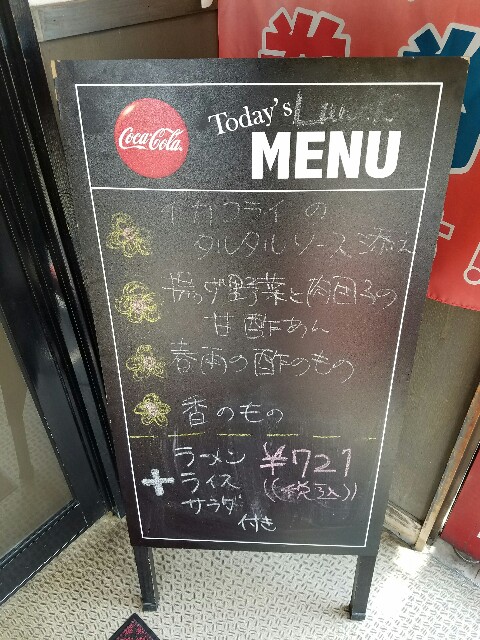 Coca-Cola
Today's Lunch
MENU
イカフライの
タルタルソース添え
揚げ野菜と肉団子の
甘酢あん
春雨の酢のもの
香のもの
+ ラーメン ¥721
ライス (税込)
サラダ
付き